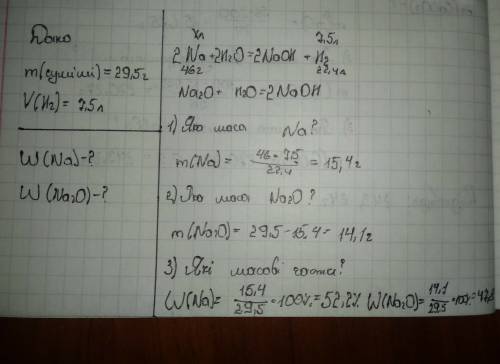 Дано
m(суміші) = 29,5г
V(H₂) = 7,5л
W(Na)-?
W(Na₂O)-?
хл 7,5л
2Na+2H₂O=2NaOH + H₂
46г 22,4л
Na₂O+ H₂O=2NaOH
1) Яка маса Na?
m(Na) = 46 · 7,5 / 22,4 = 15,4г
2) Яка маса Na₂O?
m(Na₂O) = 29,5 - 15,4 = 14,1г
3) Які масові частки?
W(Na) = 15,4 / 29,5 · 100% = 52,2% W(Na₂O) = 14,1 / 29,5 · 100% = 47,8